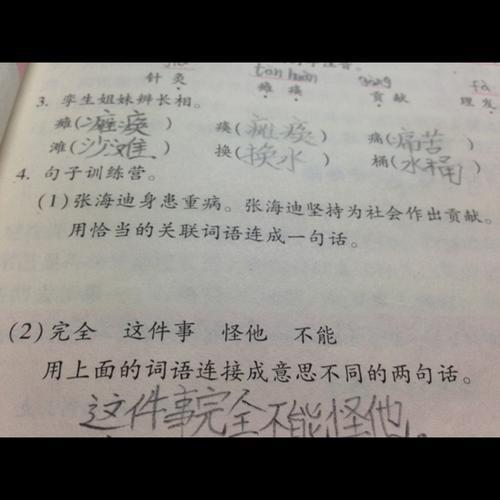 tān huàn gòng fà
针灸 瘫痪 贡献 理发
3. 孪生姐妹辨长相。
瘫(瘫痪) 痪(瘫痪) 痛(痛苦)
滩(沙滩) 换(换水) 桶(水桶)
4. 句子训练营。
(1)张海迪身患重病。张海迪坚持为社会作出贡献。
用恰当的关联词语连成一句话。
(2)完全 这件事 怪他 不能
用上面的词语连接成意思不同的两句话。
这件事完全不能怪他。